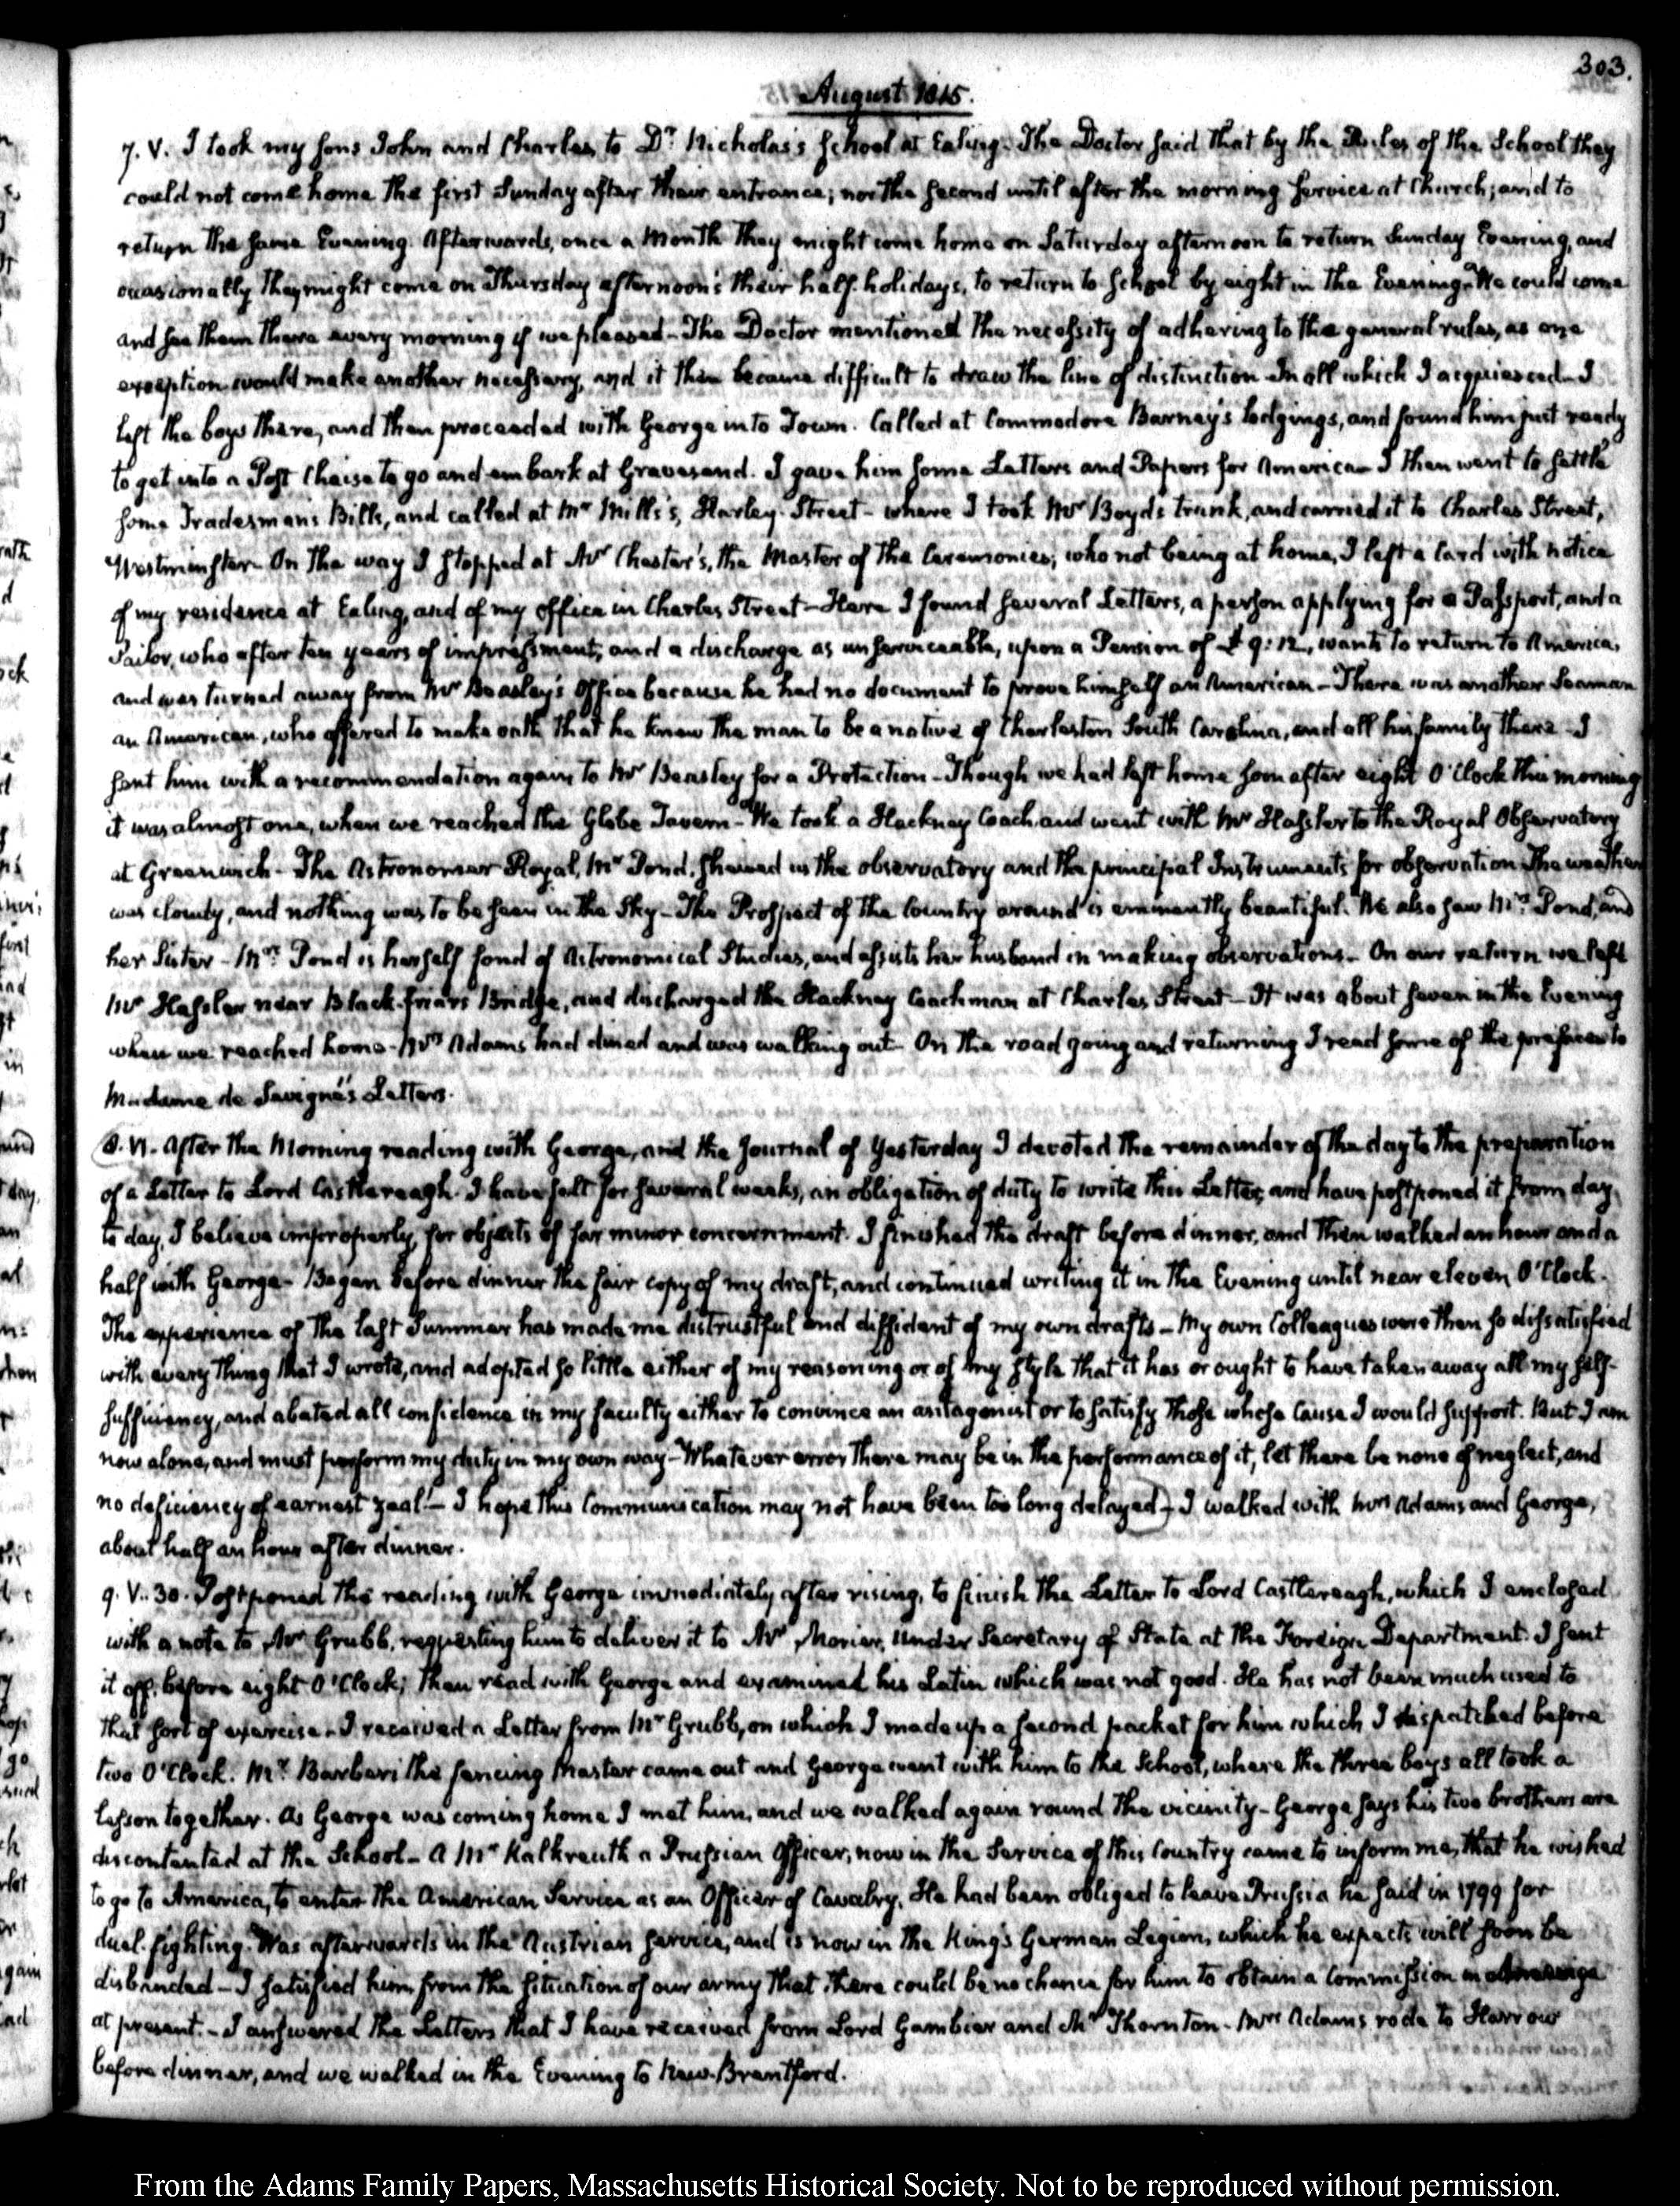 303.
August 1815.
7. V. I took my Sons John and Charles, to Dr. Nicholas's School at Ealing. The Doctor said that by the Rules of the School they
could not come home the first Sunday after their entrance; nor the second until after the morning Service at Church; and to
return the same Evening. Afterwards, once a Month they might come home on Saturday afternoon to return Sunday Evening, and
occasionally they might come on Thursday afternoon's their half-holidays, to return to School by eight in the Evening. We could come
and see them there every morning if we pleased—The Doctor mentioned the necessity of adhering to the general rules, as one
exception would make another necessary, and it then became difficult to draw the line of distinction—In all which I acquiesced—I
left the boys there, and then proceeded with George into Town. Called at Commodore Barney's lodgings, and found him just ready
to get into a Post Chaise to go and embark at Gravesend. I gave him some Letters and Papers for America—I then went to settle
some Tradesmans Bills, and called at Mr Mills's, Harley-Street—where I took Mr Boyd's trunk, and carried it to Charles Street,
Westminster—On the way I stopped at Mr Chester's, the Master of the Ceremonies; who not being at home, I left a Card with notice
of my residence at Ealing, and of my Office in Charles Street—Here I found several Letters, a person applying for a Passport, and a
Sailor, who after ten years of impressment, and a discharge as unserviceable, upon a Pension of £9:12, wants to return to America,
and was turned away from Mr Beasley's Office because he had no document to prove himself an American—There was another Seaman
an American, who offered to make oath that he knew the man to be a native of Charleston South Carolina, and all his family there—I
sent him with a recommendation again to Mr Beasley for a Protection—Though we had left home soon after eight O'Clock this morning
it was almost one, when we reached the Globe Tavern—We took a Hackney Coach and went with Mr Hassler to the Royal Observatory
at Greenwich—The Astronomer Royal, Mr Pond, shewed us the observatory and the principal Instruments for observation. The weather
was cloudy, and nothing was to be seen in the Sky—The Prospect of the Country around is eminently beautiful. We also saw Mrs. Pond, and
her Sister—Mrs. Pond is herself fond of Astronomical Studies, and assists her husband in making observations—On our return we left
Mr Hassler near Black-friars Bridge, and discharged the Hackney Coachman at Charles Street—It was about seven in the Evening
when we reached home—Mrs Adams had dined and was walking out—On the road going and returning I read some of the prefaces to
Madame de Sevigné's Letters.
8. VI. After the Morning reading with George, and the Journal of Yesterday I devoted the remainder of the day to the preparation
of a Letter to Lord Castlereagh. I have felt for several weeks, an obligation of duty to write this Letter, and have postponed it from day
to day, I believe improperly, for objects of far minor concernment. I finished the draft before dinner, and then walked an hour and a
half with George—Began before dinner the fair copy of my draft, and continued writing it in the Evening until near eleven O'Clock.
The experience of the last Summer has made me distrustful and diffident of my own drafts—My own Colleagues were then so dissatisfied
with every thing that I wrote, and adopted so little either of my reasoning or of my style that it has or ought to have taken away all my self-
sufficiency, and abated all confidence in my faculty either to convince an antagonist or to satisfy those whose Cause I would support. But I am
now alone, and must perform my duty in my own way—Whatever error there may be in the performance of it, let there be none of neglect, and
no deficiency of earnest zeal!—I hope this Communication may not have been too long delayed—I walked with Mrs Adams and George,
about half an hour after dinner.
9. V.. 30. Postponed the reading with George immediately after rising, to finish the Letter to Lord Castlereagh, which I enclosed
with a note to Mr Grubb, requesting him to deliver it to Mr Morier, Under Secretary of State at the Foreign Department. I sent
it off before eight O'Clock; then read with George and examined his Latin which was not good. He has not been much used to
that sort of exercise—I received a Letter from Mr Grubb, on which I made up a second packet for him which I dispatched before
two O'Clock. Mr. Barberi the fencing Master came out and George went with him to the School, where the three boys all took a
lesson together. As George was coming home I met him, and we walked again round the vicinity—George says his two brothers are
discontented at the School—A Mr Kalkreuth a Prussian Officer, now in the Service of this Country came to inform me, that he wished
to go to America, to enter the American Service as an Officer of Cavalry. He had been obliged to leave Prussia he said in 1799 for
duel-fighting. Was afterwards in the Austrian service, and is now in the King's German Legion, which he expects will soon be
disbanded—I satisfied him from the situation of our army that there could be no chance for him to obtain a Commission in America
at present.—I answered the Letters that I have received from Lord Gambier and Mr Thornton—Mrs Adams rode to Harrow
before dinner, and we walked in the Evening to New-Brentford.
From the Adams Family Papers, Massachusetts Historical Society. Not to be reproduced without permission.